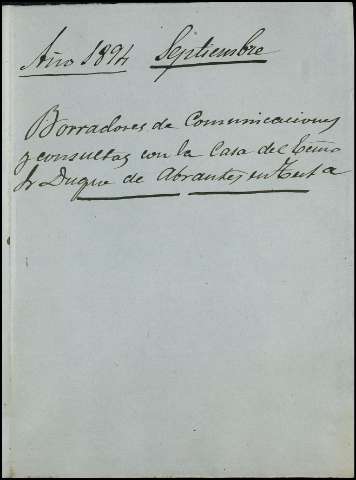 Año 1894 Septiembre
Borradores de Comunicaciones
y consultas con la Casa del Excmo
Sr Duque de Abrantes en